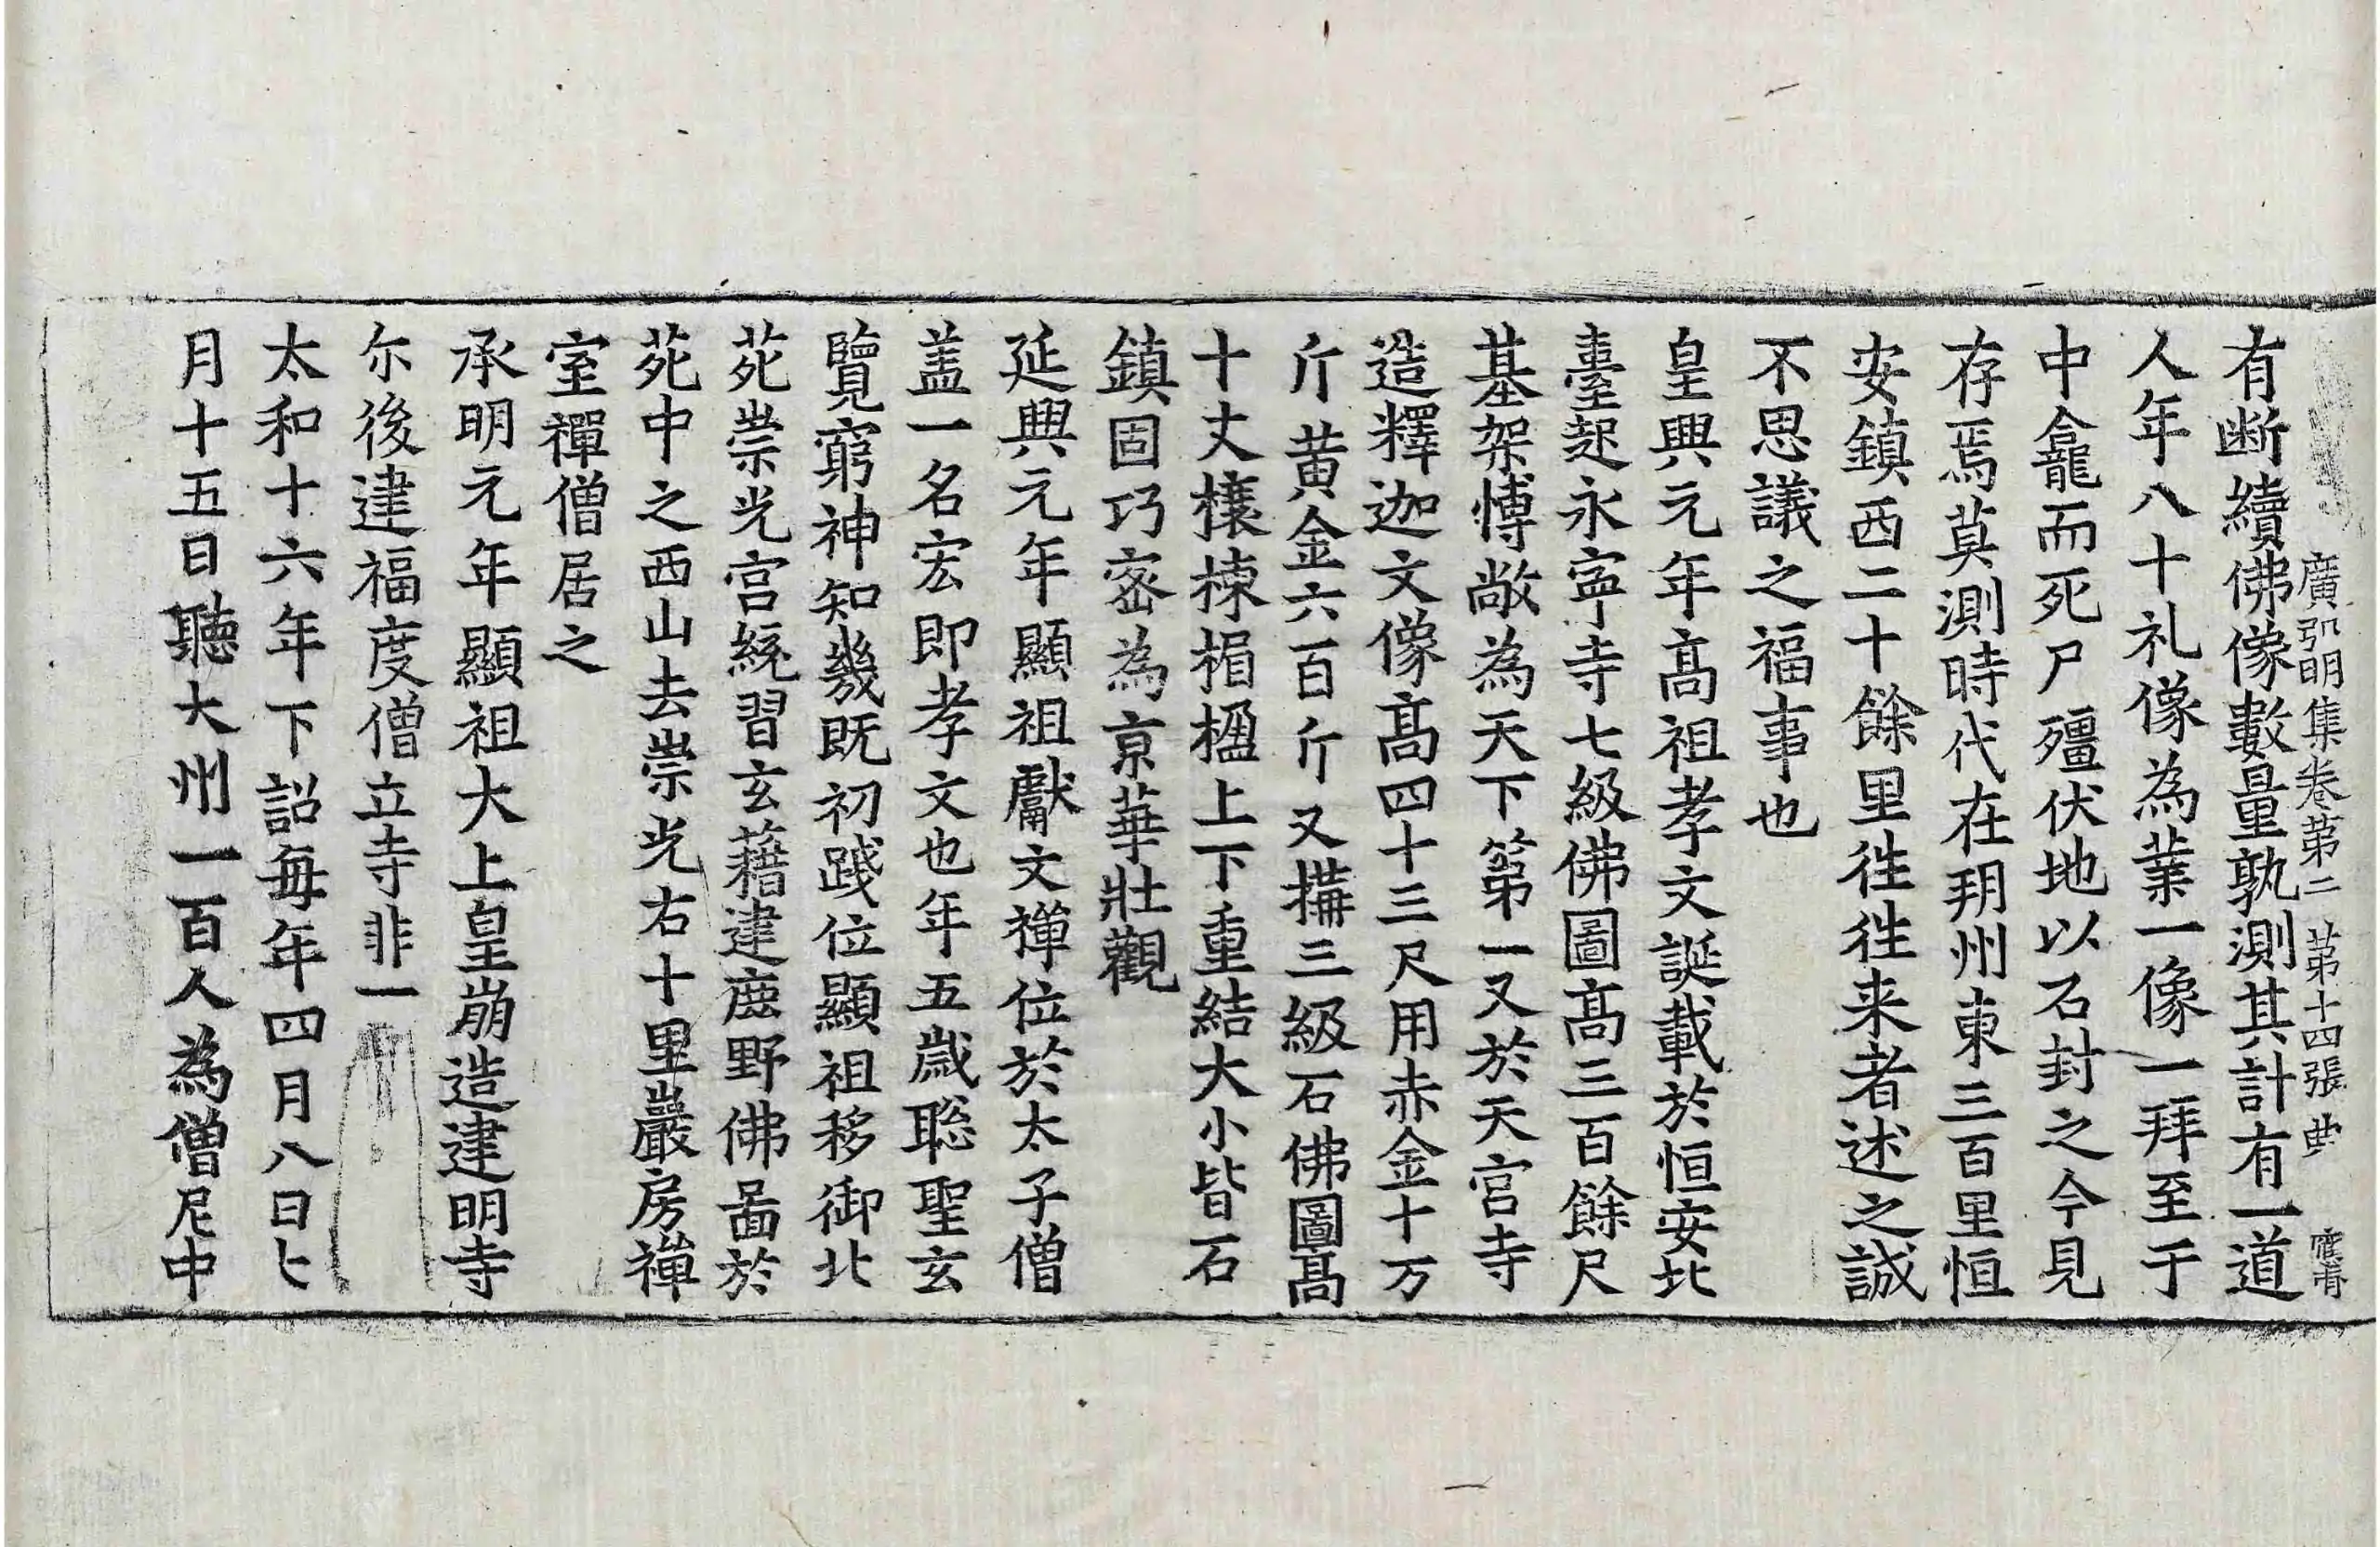 廣弘明集卷第二 第十四張 典
有断續佛像數量孰測其計有一道
人年八十礼像為業一像一拜至于
中龕而死尸殭伏地以石封之今見
存焉莫測時代在玥州東三百里恒
安鎮西二十餘里往往来者述之誠
不思議之福事也
皇興元年髙祖孝文誕載於恒安北
臺起永寧寺七級佛圖髙三百餘尺
基架愽敞為天下第一又於天宮寺
造釋迦文像髙四十三尺用赤金十万
斤黄金六百斤又搆三級石佛圖髙
十丈榱棟楣楹上下重結大小皆石
鎮固巧宻為亰華壯觀
延興元年顯祖獻文禅位於太子僧
盖一名宏即孝文也年五嵗聡聖玄
覽窮神知幾既初践位顯祖移御北
苑崇光宫統習玄藉建鹿野佛啚於
苑中之西山去崇光右十里巖房禅
室禪僧居之
承明元年顯祖大上皇崩造建明寺
尓後建福度僧立寺非一
太和十六年下詔每年四月八日七
月十五日聽大州一百人為僧尼中